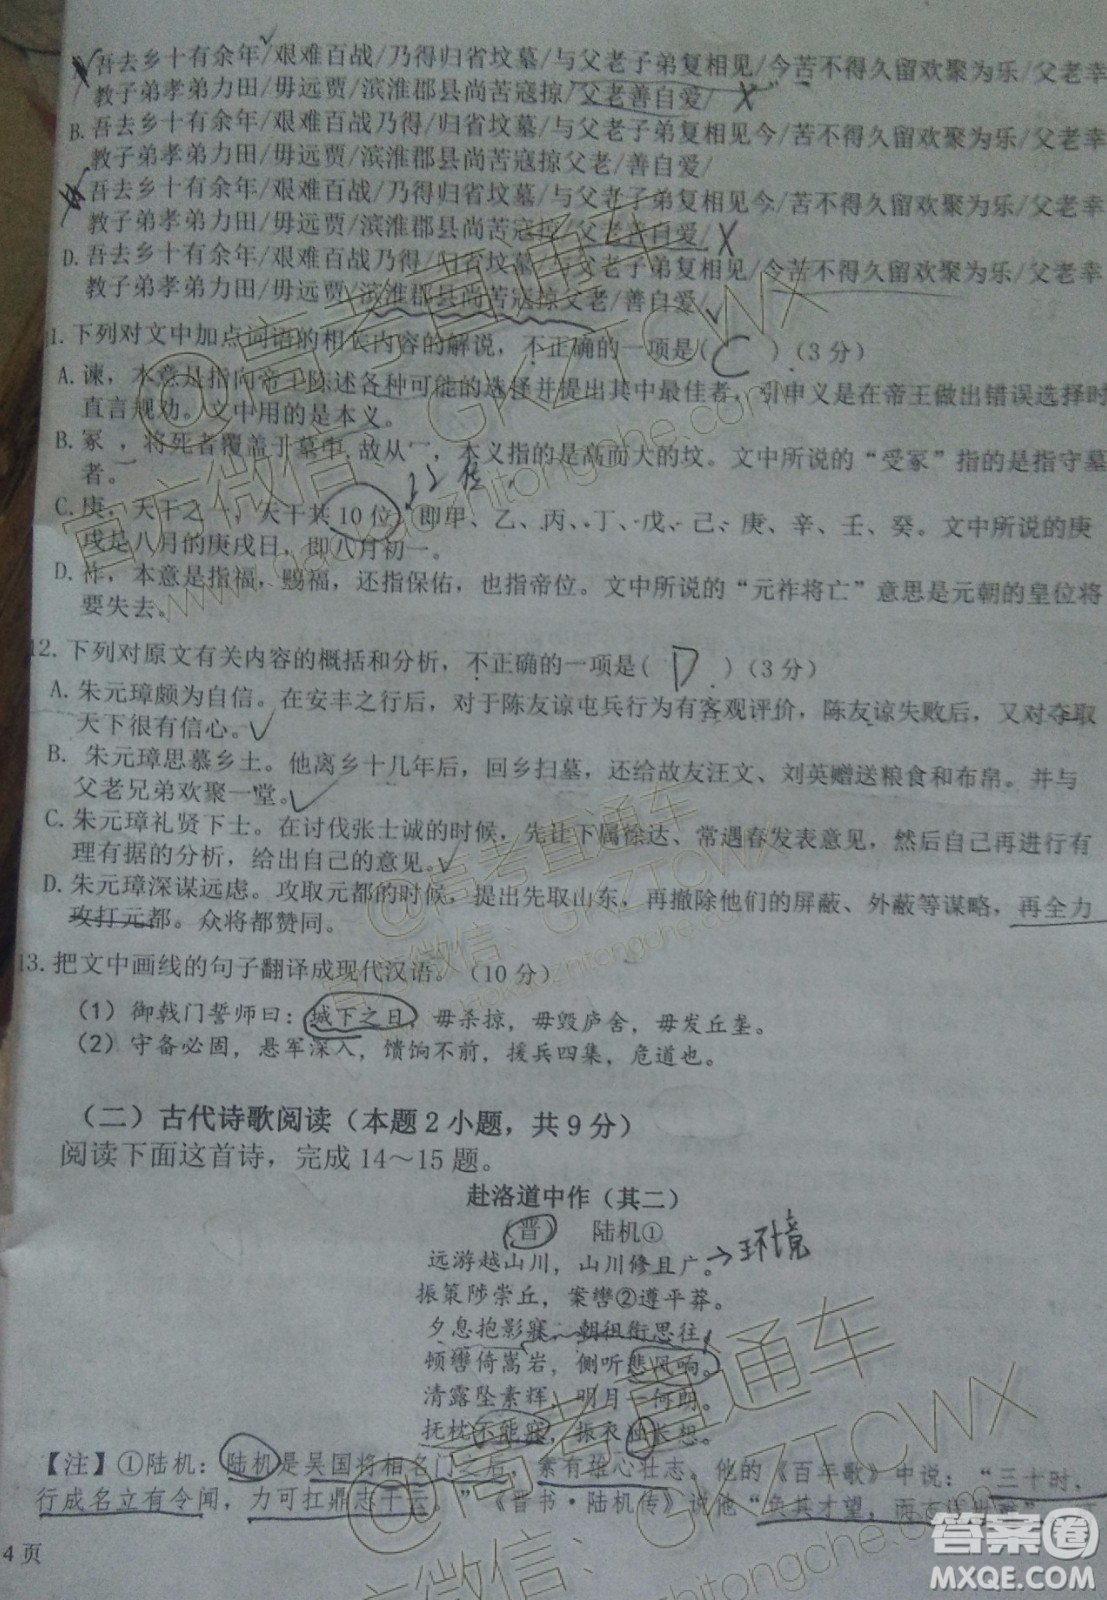 吾去乡十有余年/艰难百战/乃得归省坟墓/与父老子弟复相见/今苦不得久留欢聚为乐/父老幸
教子弟孝弟力田/毋远贾/滨淮郡县尚苦寇掠/父老善自爱/
B.吾去乡十有余年/艰难百战/乃得/归省坟墓/与父老子弟复相见今/苦不得久留欢聚为乐/父老幸
教子弟孝弟力田/毋远贾/滨淮郡县尚苦寇掠父老/善自爱/
吾去乡十有余年/艰难百战/乃得归省坟墓/与父老子弟复相见今/苦不得久留欢聚为乐/父老幸
教子弟孝弟力田/毋远贾/滨淮郡县尚苦寇掠/父老善自爱/
D.吾去乡十有余年/艰难百战乃得/归省坟墓/与父老子弟复相见/今苦不得久留欢聚为乐/父老幸
教子弟孝弟力田/毋远贾/滨淮郡县尚苦寇掠父老/善自爱/
1.下列对文中加点词语的相关内容的解说，不正确的一项是( C )(3分)
A.谏，本意是指向帝王陈述各种可能的选择并提出其中最佳者，引申义是在帝王做出错误选择时
直言规劝。文中用的是本义。
B.冢，将死者覆盖于墓中，故从冖，本义指的是高而大的坟。文中所说的“受冢”指的是指守墓
者。
C.庚，天干之一，天干共10位，即甲、乙、丙、丁、戊、己、庚、辛、壬、癸。文中所说的庚
戌是八月的庚戌日，即八月初一。
D.祚，本意是指福，赐福，还指保佑，也指帝位。文中所说的“元祚将亡”意思是元朝的皇位将
要失去。
12.下列对原文有关内容的概括和分析，不正确的一项是( D )(3分)
A.朱元璋颇为自信。在安丰之行后，对于陈友谅屯兵行为有客观评价，陈友谅失败后，又对夺取
天下很有信心。
B. 朱元璋思慕乡土。他离乡十几年后，回乡扫墓，还给故友汪文、刘英赠送粮食和布帛。并与
父老兄弟欢聚一堂。
C.朱元璋礼贤下士。在讨伐张士诚的时候，先让下属徐达、常遇春发表意见，然后自己再进行有
理有据的分析，给出自己的意见。
D.朱元璋深谋远虑。攻取元都的时候，提出先取山东，再撤除他们的屏蔽、外蔽等谋略，再全力
攻打元都。众将都赞同。
13.把文中画线的句子翻译成现代汉语。(10分)
(1) 御戟门誓师曰：城下之日，毋杀掠，毋毁庐舍，毋发丘垄。
(2) 守备必固，悬军深入，馈饷不前，援兵四集，危道也。
(二)古代诗歌阅读(本题2小题，共9分)
阅读下面这首诗，完成14～15题。
赴洛道中作(其二)
(晋) 陆机①
远游越山川，山川修且广。→环境
振策陟崇丘，案辔②遵平莽。
夕息抱影寐，朝徂衔思往。
顿辔倚嵩岩，侧听悲风响。
清露坠素辉，明月一何朗。
抚枕不能寐，振衣独长想。
【注】①陆机：陆机是吴国将相名门之后，素有雄心壮志。他的《百年歌》中说：“三十时，
行成名立有令闻，力可扛鼎志干云。”《晋书·陆机传》说他“负其才望，而志匡世难”
4 页
@高考直通车
官方微信：GKZTCWX
www.gaokaozhitongche.com
@高考直通车
官方微信：GKZTCWX
www.gaokaozhitongche.com
@高考直通车
官方微信：GKZTCWX
答案圈
MXQE.COM